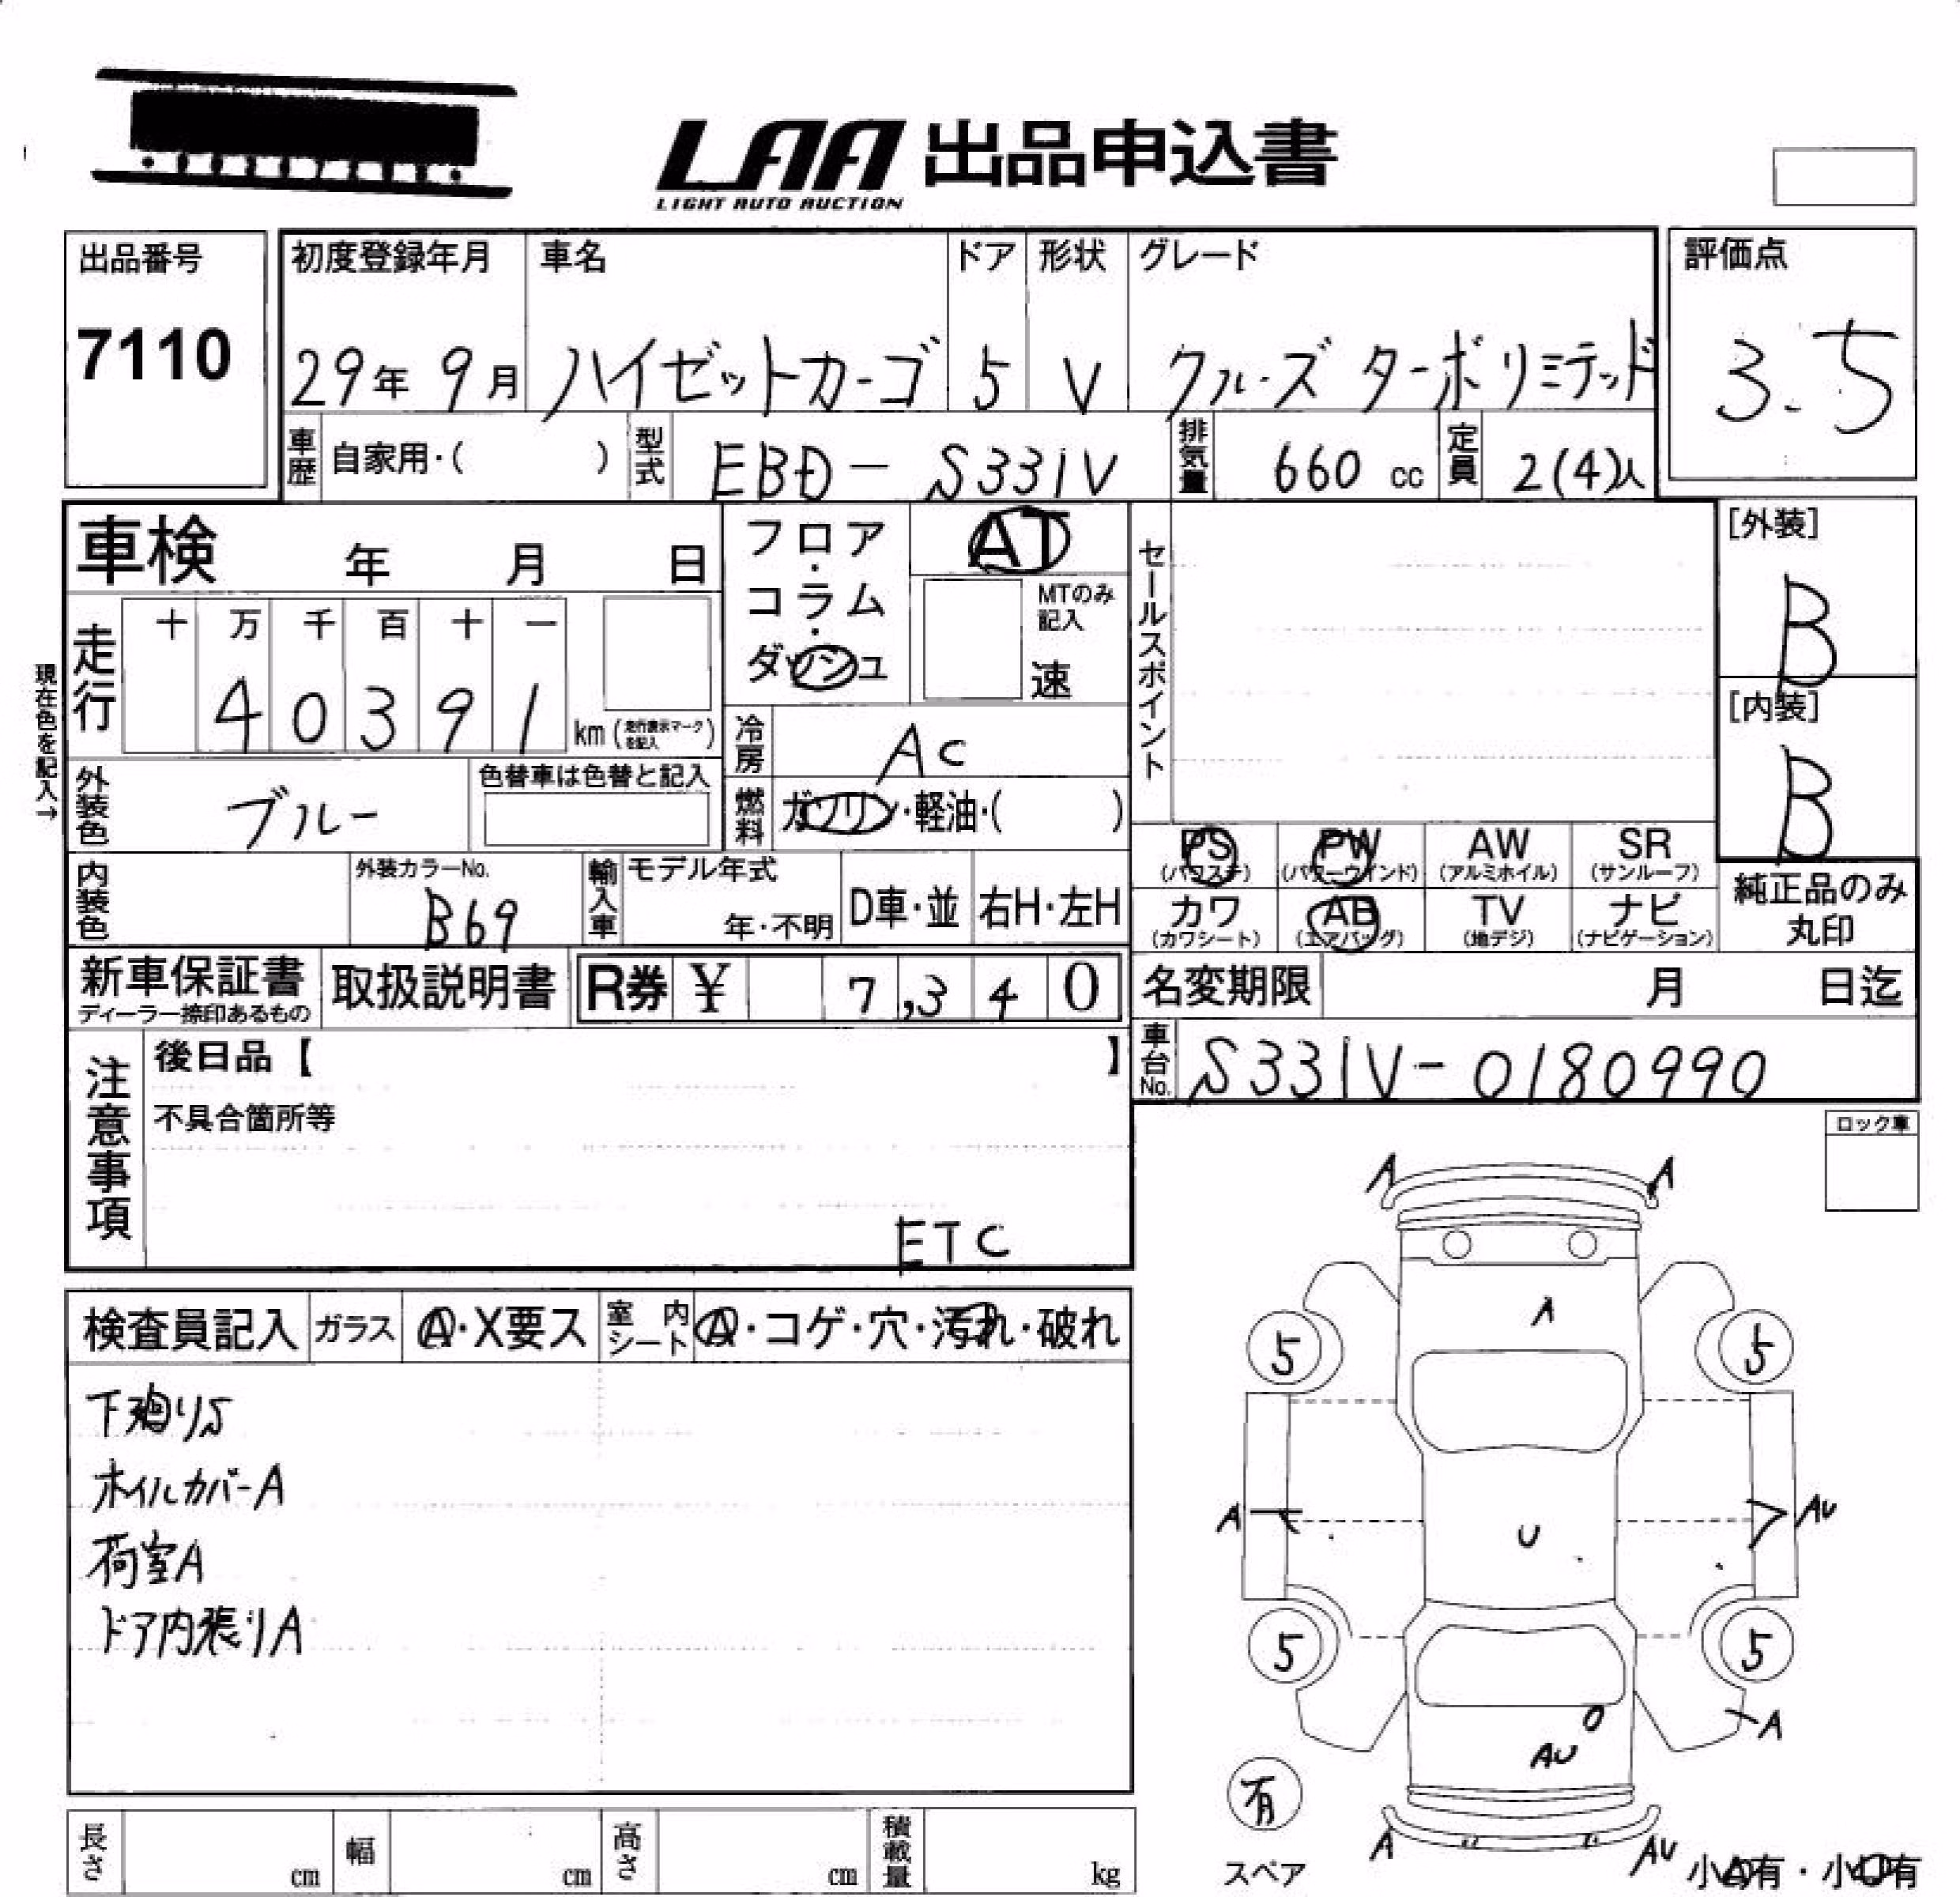 LAA 出品申込書
LIGHT AUTO AUCTION
出品番号
7110
初度登録年月
29年 9月
車名
ハイゼットカーゴ
ドア
5
形状
V
グレード
クルーズ ターボ リミテッド
評価点
3.5
車歴 自家用・( )
型式 EBD- S331V
排気量 660 cc
定員 2(4)人
車検 年 月 日
フロア・コラム・ダッシュ
AT
MTのみ記入
速
セールスポイント
[外装]
B
[内装]
B
現在色を記入→
走行 十 万 千 百 十 一
4 0 3 9 1 km (走行表示マークを記入)
冷房 AC
外装色 ブルー
色替車は色替と記入
燃料 ガソリン・軽油・( )
内装色
外装カラーNo.
B69
輸入車 モデル年式
年・不明
D車・並
右H・左H
PS (パワステ)
PW (パワーウインド)
AW (アルミホイル)
SR (サンルーフ)
カワ (カワシート)
AB (エアバッグ)
TV (地デジ)
ナビ (ナビゲーション)
純正品のみ丸印
新車保証書
ディーラー捺印あるもの
取扱説明書
R券 ¥ 7,340
名変期限 月 日迄
車台No. S331V-0180990
注意事項
後日品【 】
不具合箇所等
ETC
ロック車
検査員記入
ガラス A・X要ス
室内シート A・コゲ・穴・汚れ・破れ
下廻りS
ホイルカバーA
荷室A
ドア内張りA
A A
A
5 5
A AU
U
5 5
A
AU
有
スペア
A AU
小A有・小U有
長さ cm
幅 cm
高さ cm
積載量 kg